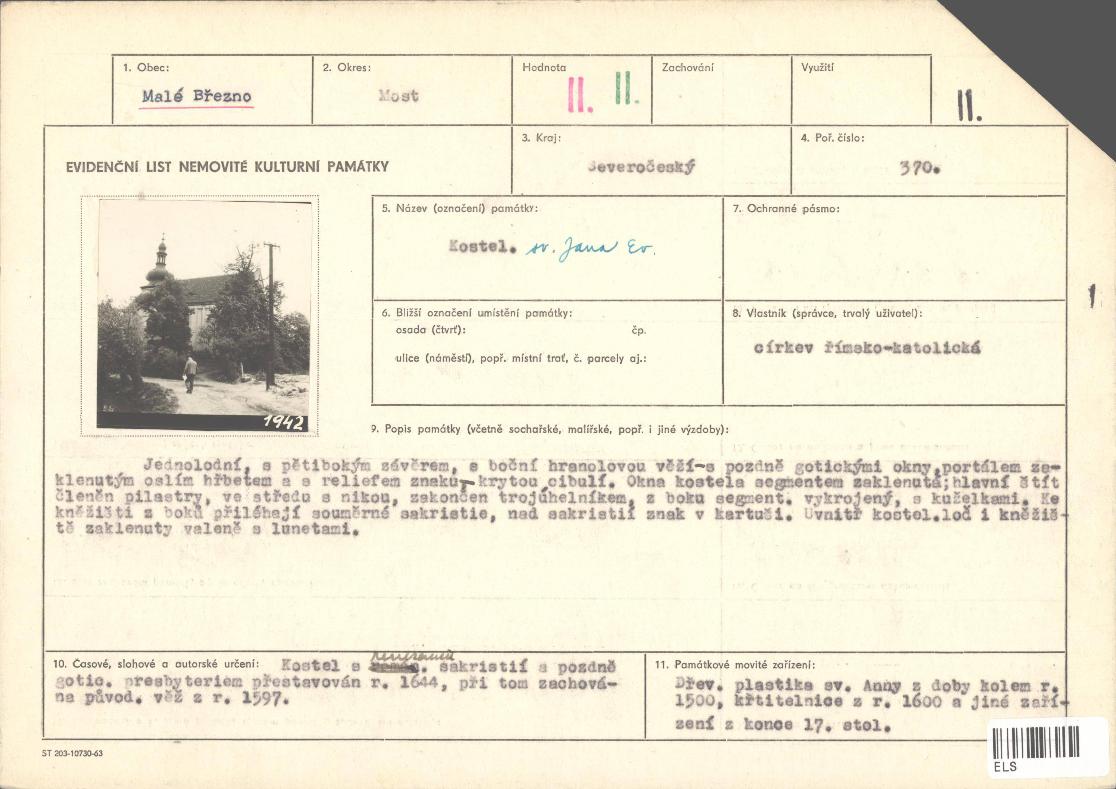 1. Obec:
Malé Březno
2. Okres:
Most
Hodnota
II. II.
Zachování
Využití
II.
EVIDENČNÍ LIST NEMOVITÉ KULTURNÍ PAMÁTKY
3. Kraj:
Severočeský
4. Poř. číslo:
370.
1942
5. Název (označení) památky:
Kostel. sv. Jana Ev.
7. Ochranné pásmo:
1
6. Bližší označení umístění památky:
osada (čtvrť): čp.
ulice (náměstí), popř. místní trať, č. parcely aj.:
8. Vlastník (správce, trvalý uživatel):
církev římsko-katolická
9. Popis památky (včetně sochařské, malířské, popř. i jiné výzdoby):
Jednolodní, s pětibokým závěrem, s boční hranolovou věží-s pozdně gotickými okny,portálem za-
klenutým oslím hřbetem a s reliefem znaku-krytou cibulí. Okna kostela segmentem zaklenutá;hlavní štít
členěn pilastry, ve středu s nikou, zakončen trojúhelníkem, z boku segment. vykrojený, s kuželkami. Ke
kněžišti z boků přiléhají souměrné sakristie, nad sakristií znak v kartuši. Uvnitř kostel.loď i kněžiš-
tě zaklenuty valeně s lunetami.
10. Časové, slohové a autorské určení: Kostel s sakristií a pozdně
gotic. presbyteriem přestavován r. 1644, při tom zachová-
na původ. věž z r. 1597.
11. Památkové movité zařízení:
Dřev. plastika sv. Anny z doby kolem r.
1500, křtitelnice z r. 1600 a jiné zaří-
zení z konce 17. stol.
ST 203-10730-63
ELS